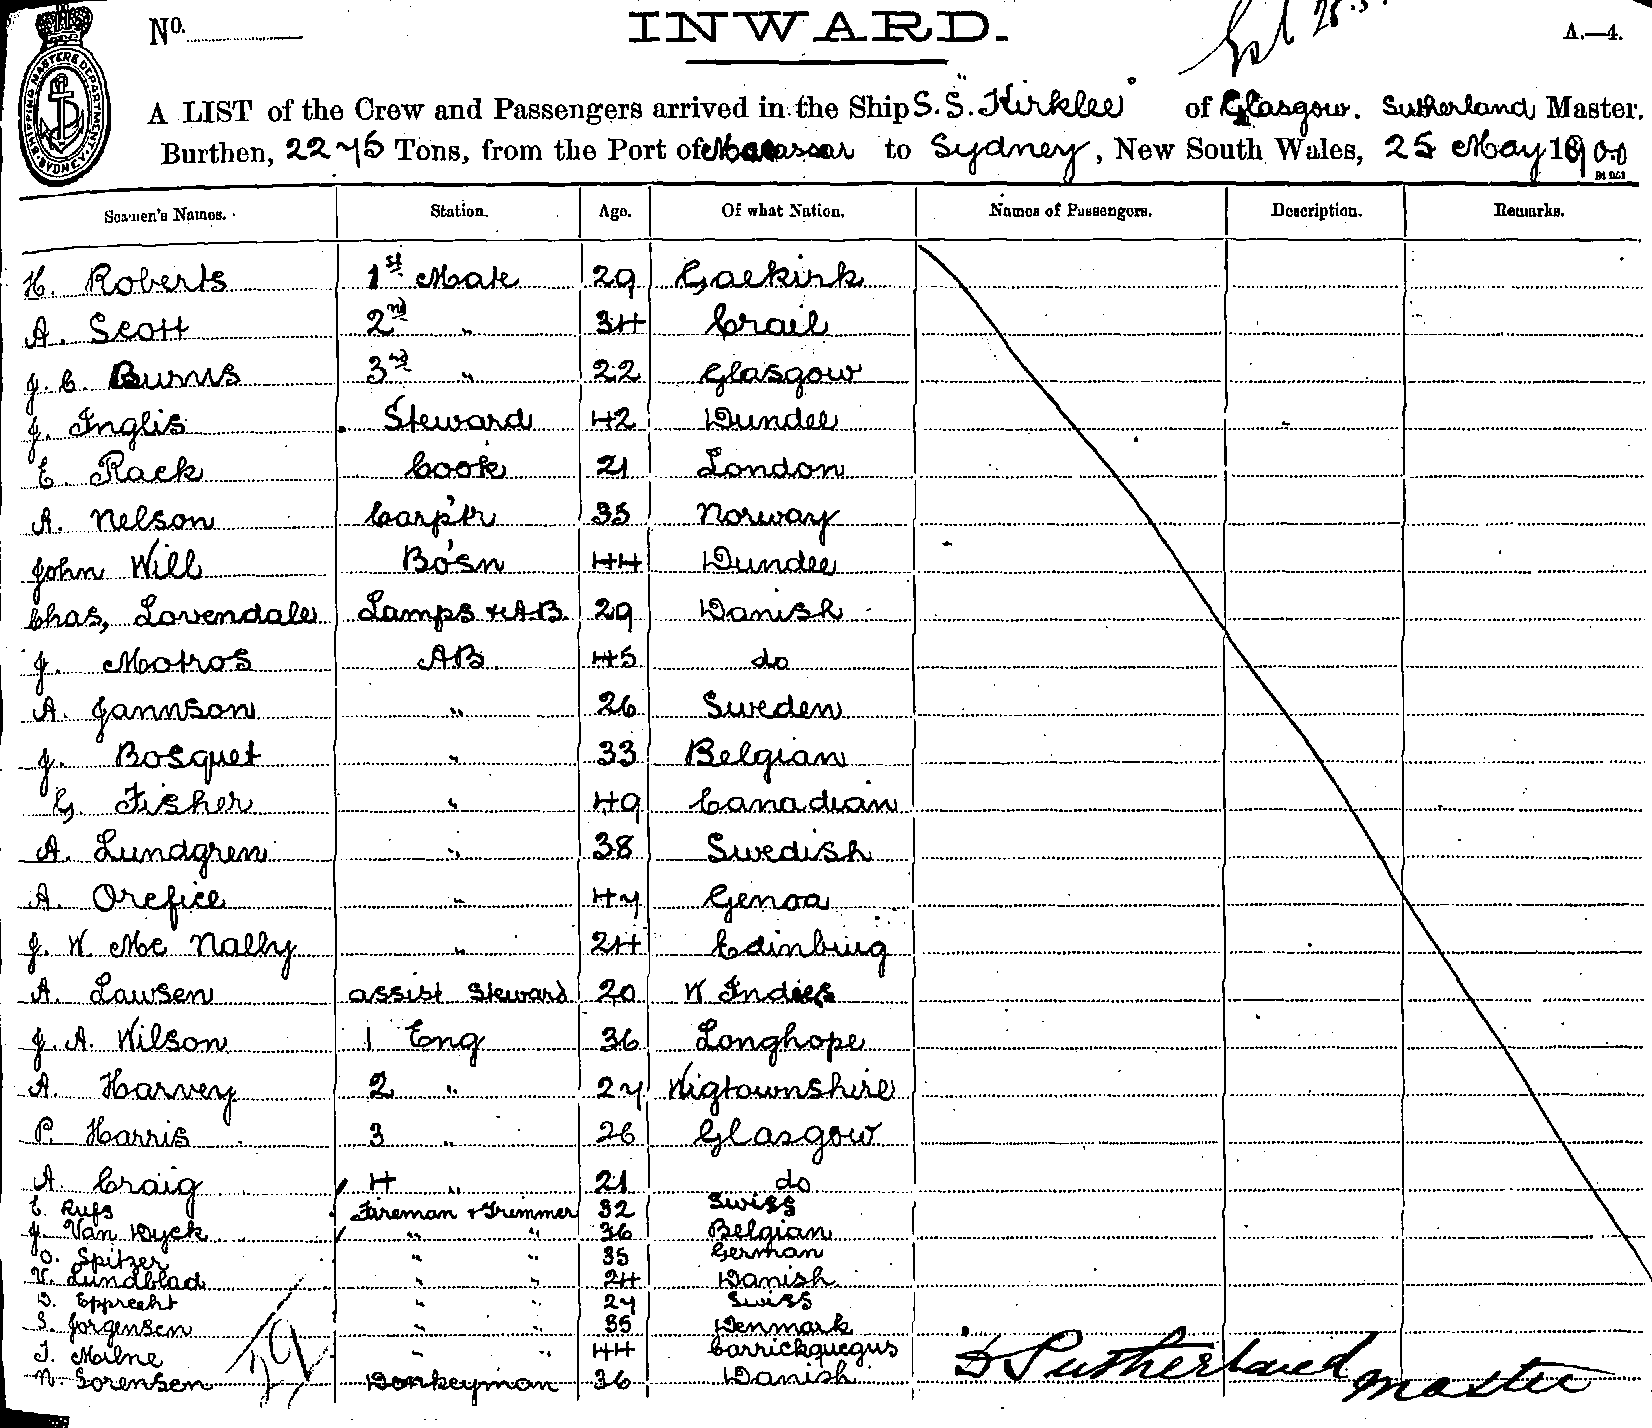 No.
INWARD.
A.—4.
SHIPPING MASTERS DEPARTMENT SYDNEY
A LIST of the Crew and Passengers arrived in the Ship S.S. "Kirklee" of Glasgow. Sutherland Master.
Burthen, 2275 Tons, from the Port of Macassar to Sydney, New South Wales, 25 May 1900
Seamen's Names. Station. Age. Of what Nation. Names of Passengers. Description. Remarks.
H. Roberts 1st Mate 29 Galkirk
A. Scott 2nd " 34 Crail
J. C. Burns 3rd " 22 Glasgow
J. Inglis Steward 42 Dundee
E. Rack Cook 21 London
A. Nelson Carp'tr 35 Norway
John Will Bo'sn 44 Dundee
Chas, Lovendale Lamps & A.B. 29 Danish
J. Motros AB 45 do
A. Jannson " 26 Sweden
J. Bosquet " 33 Belgian
G. Fisher " 49 Canadian
A. Lundgren " 38 Swedish
A. Orefice " 47 Genoa
J. W. Mc Nally " 24 Edinburg
A. Lawsen assist Steward 20 W Indies
J. A. Wilson 1 Eng 36 Longhope
A. Harvey 2 " 27 Wigtownshire
P. Harris 3 " 26 Glasgow
A. Craig 4 " 21 do
E. Rufs Fireman & Trimmer 32 Swiss
J. Van Dyck " " 36 Belgian
O. Spitzer " " 35 German
V. Lundblad " " 24 Danish
D. Epprecht " " 27 Swiss
S. Jorgensen " " 35 Denmark
T. Milne " " 44 Carrickquegus
N. Sorensen Donkeyman 36 Danish
29
D Sutherland Master